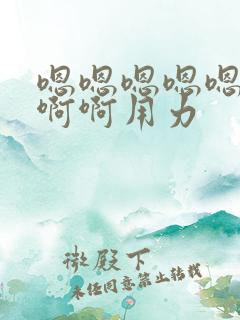 嗯嗯嗯嗯嗯
啊啊用力
微殿下
未经同意禁止转载